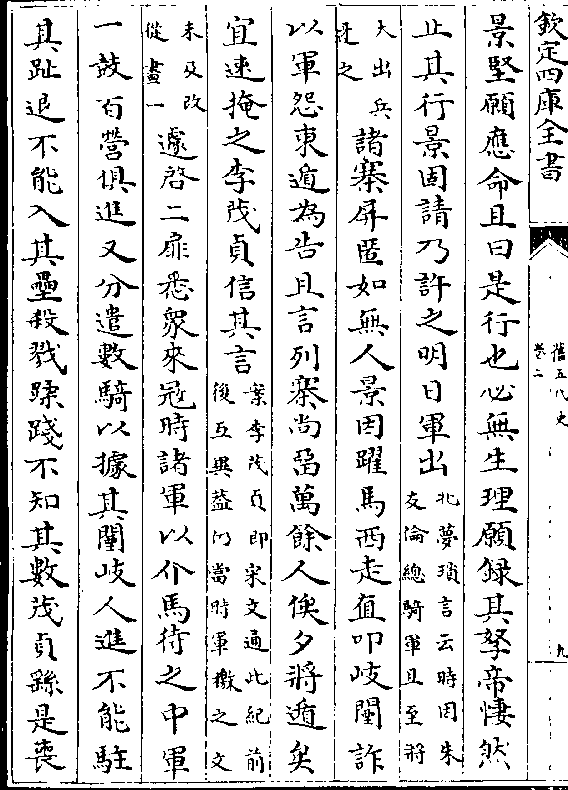 欽定四庫全書
舊五代史
卷二
九
景堅願應命且曰是行也必無生理願錄其孥帝悽然
止其行景固請乃許之明日軍出
北夢瑣言云時因朱
友倫總騎軍且至將
大出兵
迓之
諸寨屏匿如無人景因躍馬西走直叩岐闉詐
以軍怨東遁為告且言列寨尚留萬餘人俟夕將遁矣
宜速掩之李茂貞信其言
案李茂貞即宋文通此紀前
後互異蓋仍當時軍檄之文
未及改
從畫一
遽啓二扉悉衆來冦時諸軍以介馬待之中軍
一鼓百營俱進又分遣數騎以據其闉岐人進不能駐
其趾退不能入其壘殺戮蹂踐不知其數茂貞繇是喪